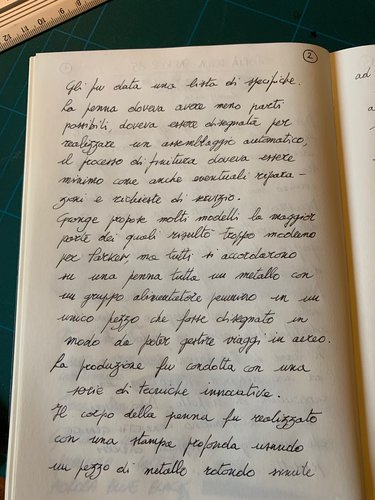 2
Gli fu data una lista di specifiche.
La penna doveva avere meno parti
possibili, doveva essere disegnata per
realizzare un assemblaggio automatico,
il processo di finitura doveva essere
minimo come anche eventuali ripara-
zioni e richieste di servizio.
Grange propose molti modelli la maggior
parte dei quali risultò troppo moderno
per Parker, ma tutti si accordarono
su una penna tutta un metallo con
un gruppo alimentatore pennino in un
unico pezzo che fosse disegnato in
modo da poter gestire viaggi in aereo.
La produzione fu condotta con una
serie di tecniche innovative.
Il corpo della penna fu realizzato
con una stampa profonda usando
un pezzo di metallo rotondo simile
ad